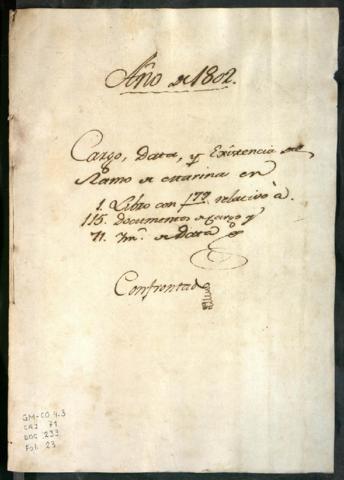 Año de 1802.
Cargo, Data, y Existencia del
Ramo de Marina en
1. Libro con 179 relativo à
115. Documentos de Cargo y
71. Ym.s de Data
Confrontado
GM-CO 4.3
CAJ 71
DOC 233
Fol. 23